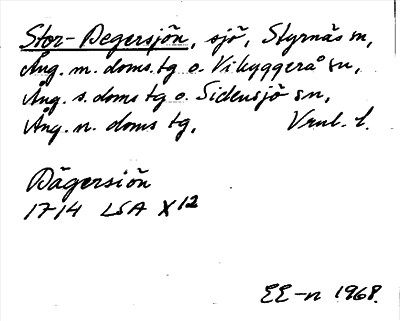 Stor-Degersjön, sjö, Styrnäs sn,
Ång. m. doms. tg o. Vibyggerå sn,
Ång. s. doms tg o. Sidensjö sn,
Ång. n. doms tg. Vnl. l.
Dägersiön
1714 LSA X12
EE-n 1968.